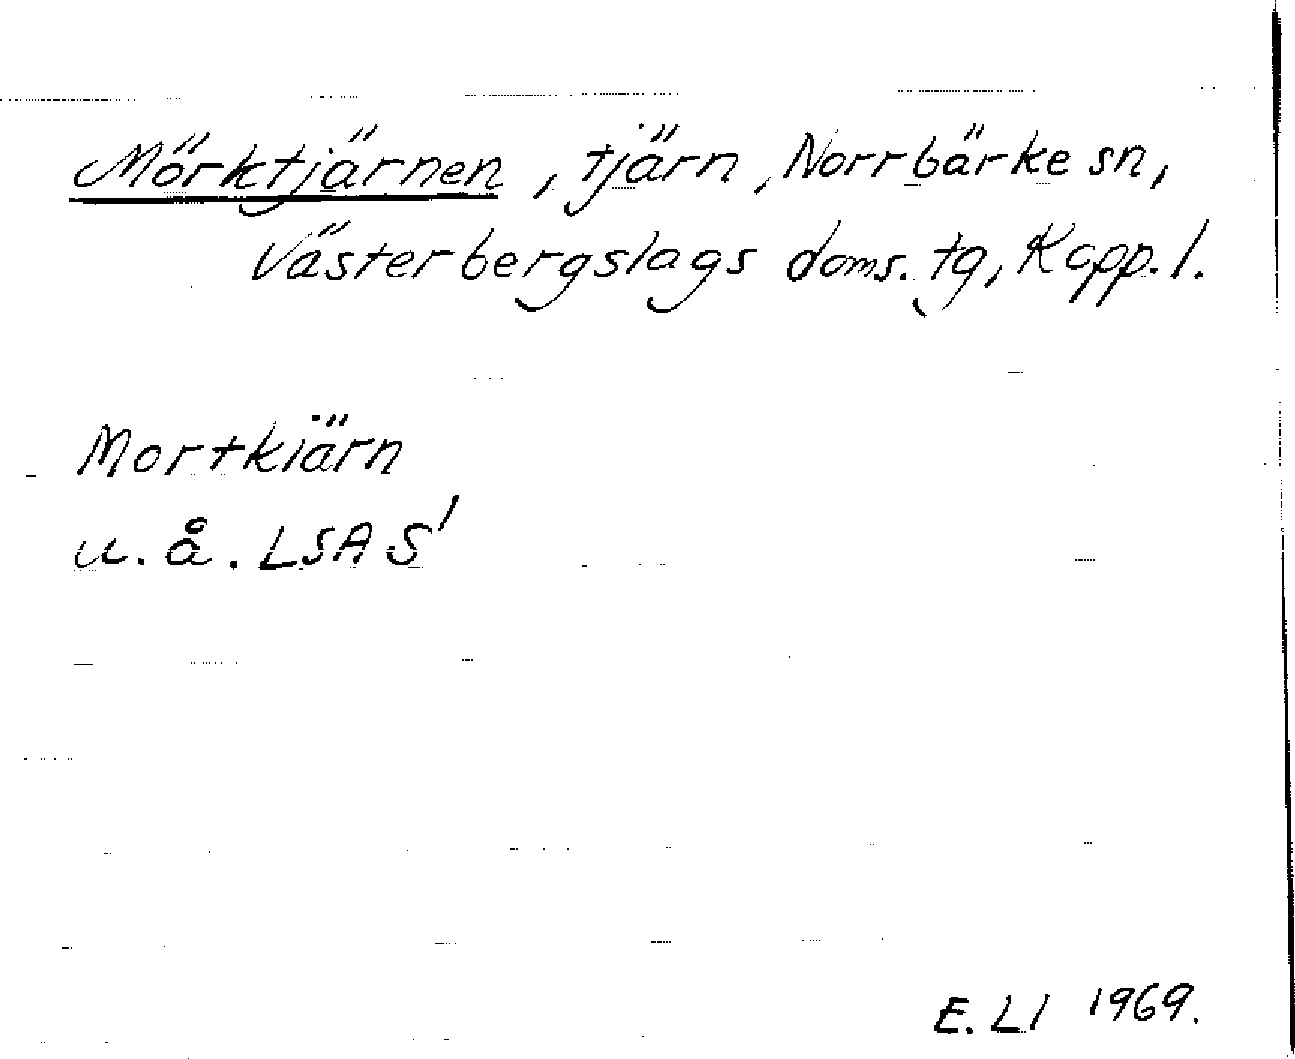 Mörktjärnen, tjärn, Norrbärke sn,
Västerbergslags doms. tg, Kopp. l.
Mortkiärn
u. å. LSA S'
E. LI 1969.